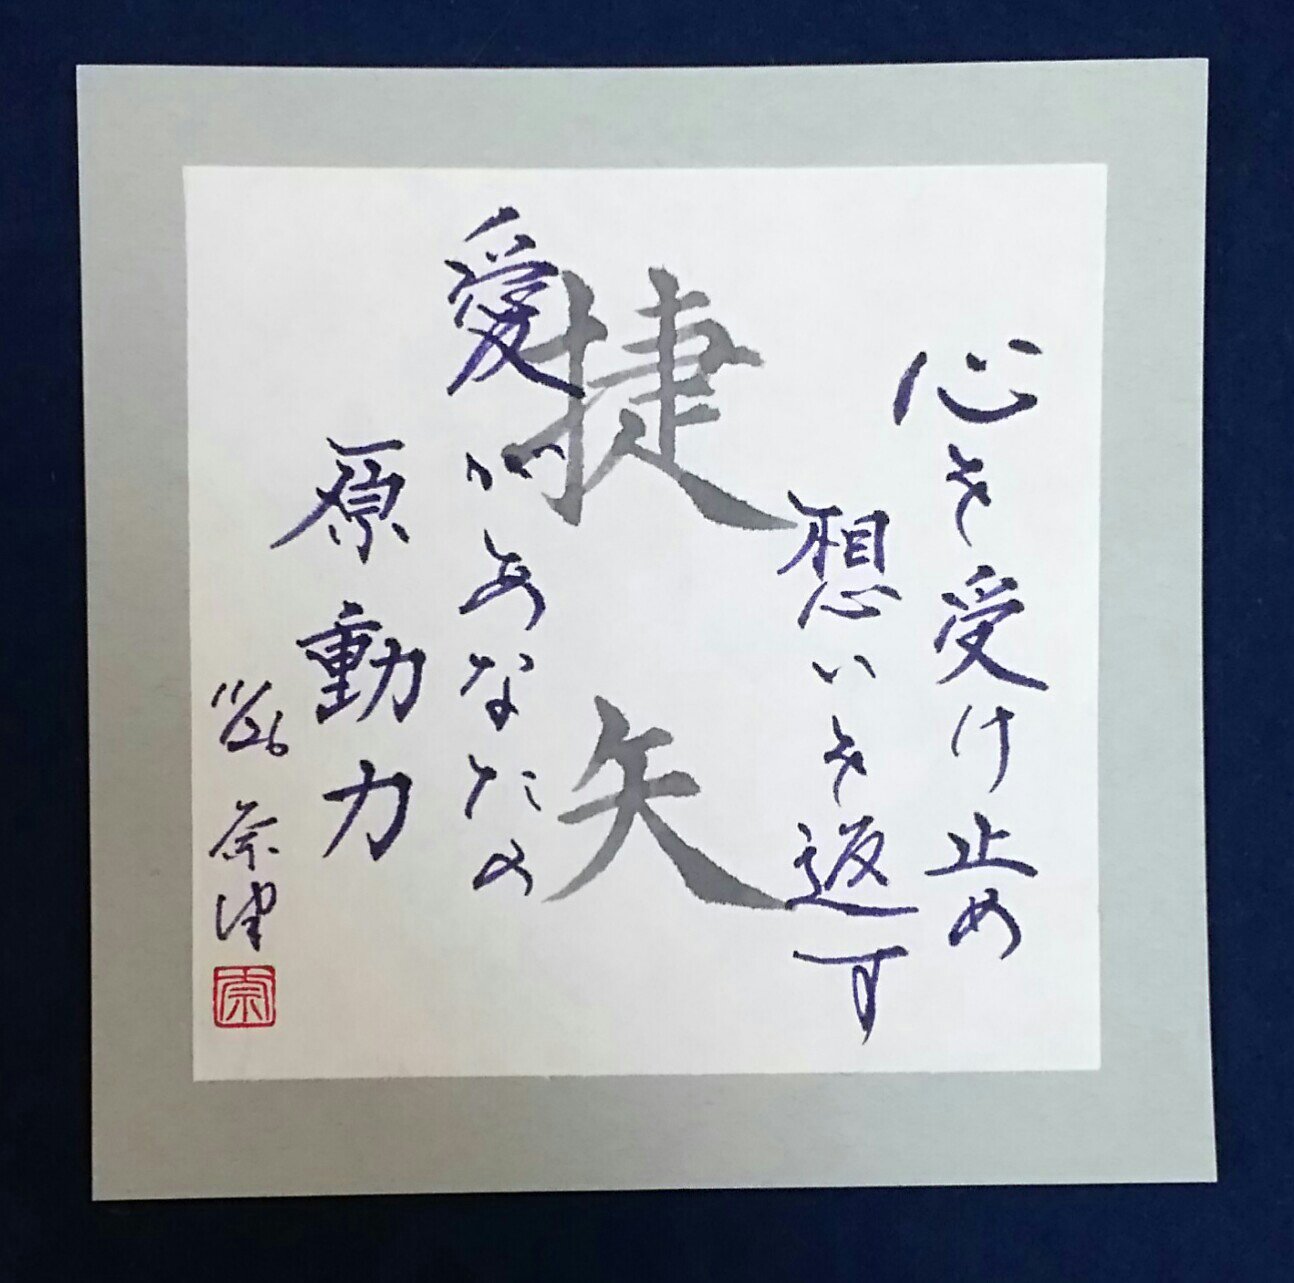 心を受け止め
想いを返す
捷矢
愛があなたの
原動力
11/26
奈